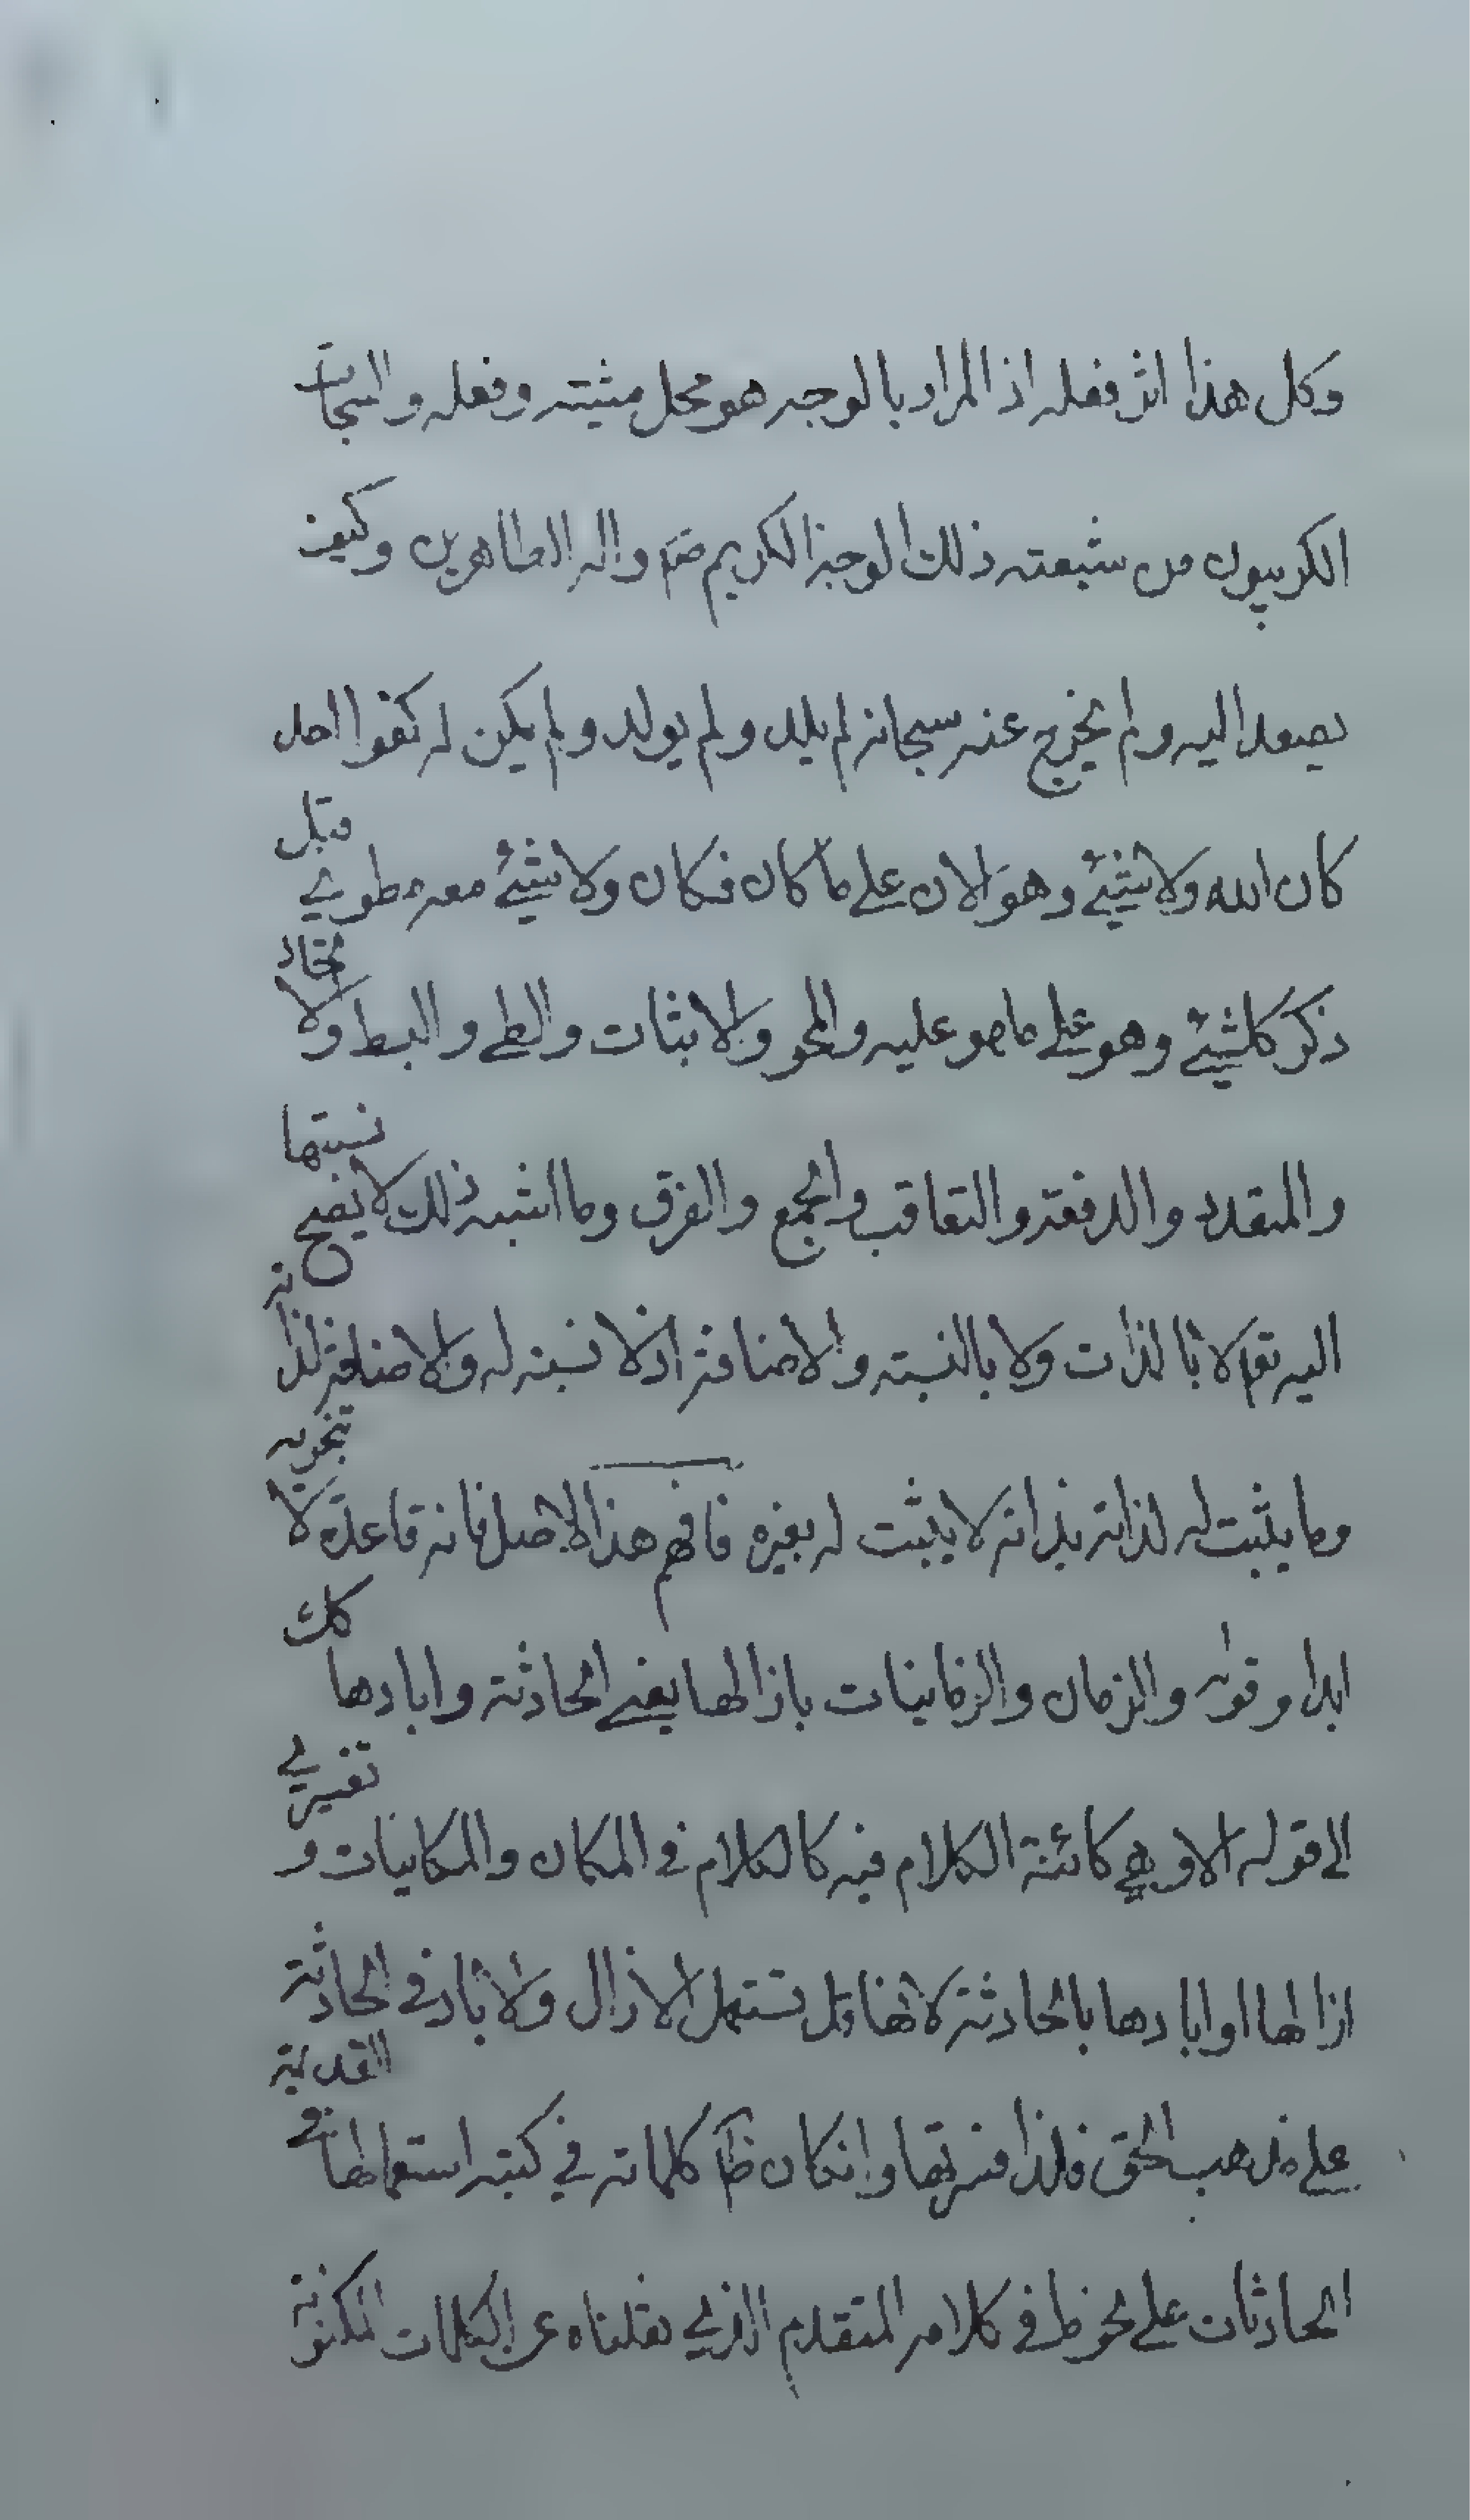 وكل هذا اثر فعله اذ المراد بالوجه هو محل مشيته وفعله والسبحات
الكروبيون من شيعته ذلك الوجه الكريم صم واله الطاهرين وكيف
يصعد اليه ولم يخرج عنه سبحانه لم يلد ولم يولد ولم يكن له كفوا احد
كان الله ولا شيئ وهو الان على ما كان فكان ولا شيئ معه مطوي قبل
ذكر كلشيئ وهو على ما هو عليه والمحو والاثبات والطي والبسط ولا تخاد
والمتعدد والدفعة والتعاقب والجمع والفرق وما اشبه ذلك لا يصح نسبتها
اليه تعم لا بالذات ولا بالنسبة والاضافة اذ لا نسبة له ولا اضافة لذاته
وما يثبت له لذاته بذاته لا يثبت له بغيره فافهم هذا الاصل فانه قاعدة لا تخربه
ابدا وقوله والزمان والزمانيات بازالها يعني الحادثة وابادها كك
الى قوله الا وهي كائنة الكلام فيه كالكلام في المكان والمكانيات و تفسيري
ازالها او ابادها بالحادثة لانها تستعمل الازال والاباد في الحادثة
على مذهب الحق فلذا فسرتها وانكان ظم كلماته في كتبه استعمالها في القديمة
الحادثات على نحو ظ في كلامه المتقدم الذي نقلناه عن الكلمات المكنونة